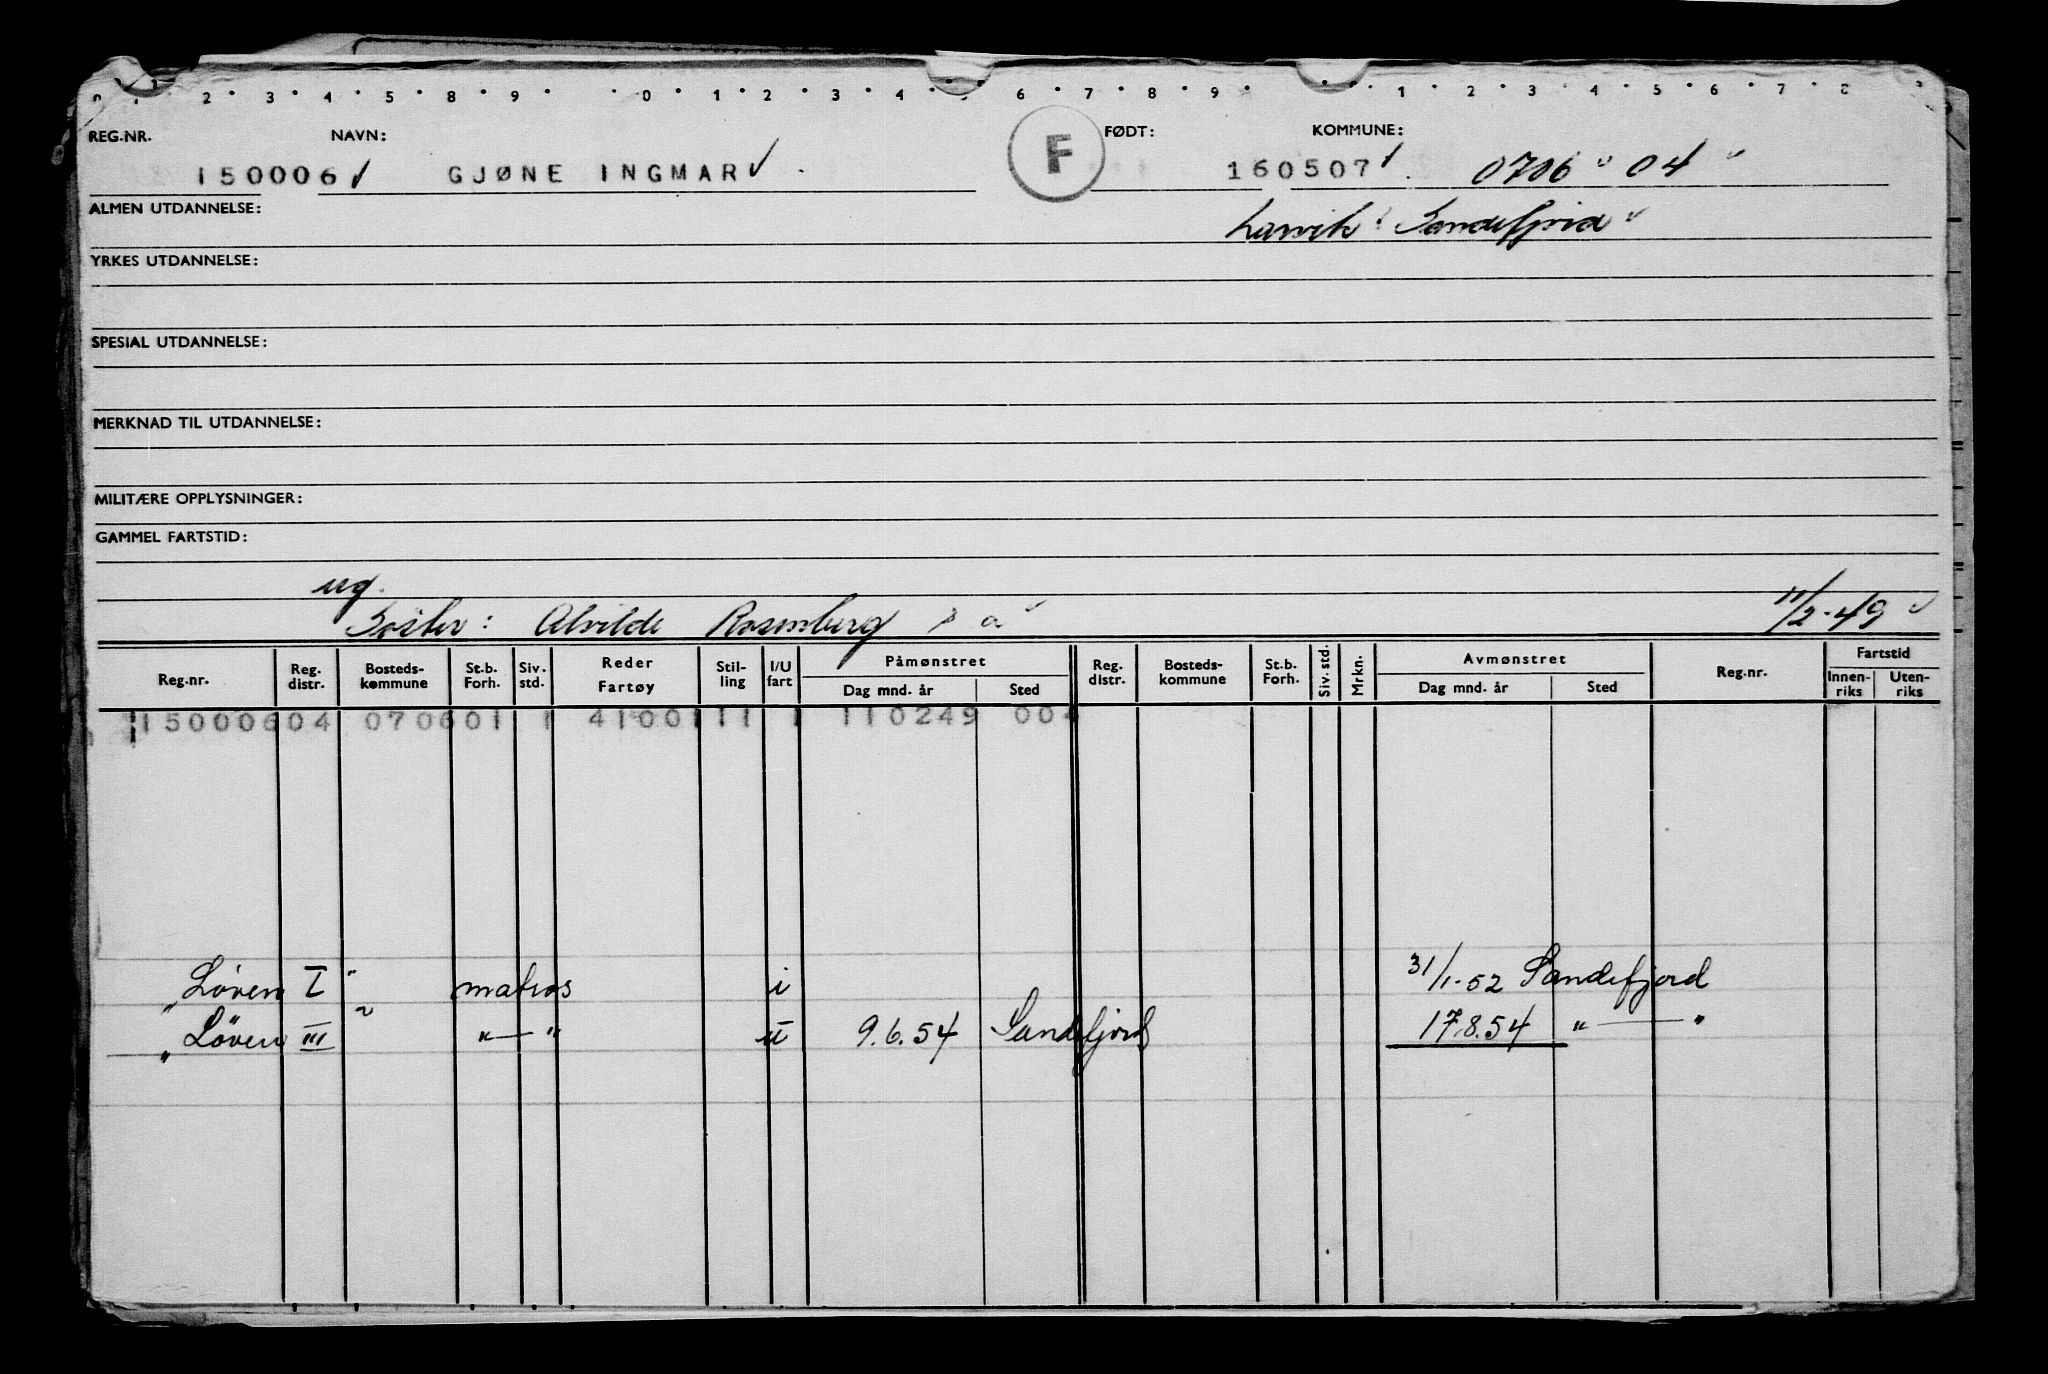 2 · 3 · 4 · 5 · 8 · 9 · · 0 · 1 · 2 · 3 · 4 · 6 · 7 · 8 · 9 · 1 · 2 · 3 · 4 · 5 · 6 · 7 ·
REG.NR. NAVN: F FØDT: KOMMUNE:
150006 GJØNE INGMAR 160507 0706 04
ALMEN UTDANNELSE: Larvik Sandefjord
YRKES UTDANNELSE:
SPESIAL UTDANNELSE:
MERKNAD TIL UTDANNELSE:
MILITÆRE OPPLYSNINGER:
GAMMEL FARTSTID:
ug.
Søster: Alvilde Rosenberg s a 11/2-49
Reg.nr. Reg. distr. Bosteds-kommune St.b. Forh. Siv. std. Reder Fartøy Stil-ling I/U fart Påmønstret Dag mnd. år Sted Reg. distr. Bosteds-kommune St.b. Forh. Siv. std. Mrkn. Avmønstret Dag mnd. år Sted Reg.nr. Fartstid Innen-riks Uten-riks
15000604 070601 1 4100111 1 110249 004
"Løven I" matros i 31/1-52 Sandefjord
"Løven III" "—" u 9.6.54 Sandefjord 17.8.54 "—"